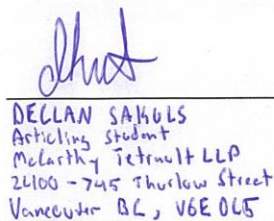 DECLAN SAKULS
Articling Student
McCarthy Tetrault LLP
2400 - 745 Thurlow Street
Vancouver BC, V6E 0C5